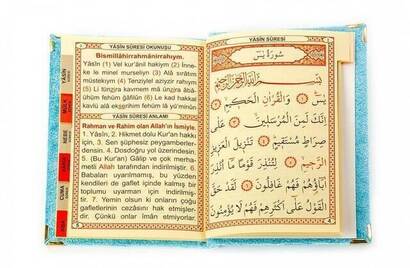 YÂSİN SÛRESİ OKUNUŞU
Bismillâhirrahmânirrahıym.
Yâsîn (1) Vel kur'ânil hakiym (2) İnne-
ke le minel murseliyn (3) Alâ sırâtım
müstekiym (4) Tenziylel aziyzir rahıym
(5) Li tünzira kavmem mâ ünzira âbâ-
ühüm fehüm ğâfilûn (6) Le kad hakkal
kavlü alâ ekserihim fehüm lâ yü'minûn
YÂSİN SÛRESİ ANLAMI
Rahman ve Rahim olan Allah'ın İsmiyle.
1. Yâsîn, 2. Hikmet dolu Kur'an hakkı
için, 3. Sen şüphesiz peygamberler-
densin. 4. Dosdoğru yol üzerindesin.
5. (Bu Kur'an) Gâlip ve çok merha-
metli Allah tarafından indirilmiştir. 6.
Babaları uyarılmamış, bu yüzden
kendileri de gaflet içinde kalmış bir
toplumu uyarman için indirilmiş-
tir. 7. Yemin olsun ki onların çoğu
gafletlerinin cezasını hak etmişler-
dir. Çünkü onlar îmân etmiyorlar.
YÂSİN
MÜLK
NEBE
CUMA
YÂSİN SÛRESİ
سُورَةُ يٰسٓ
بِسْمِ اللّٰهِ الرَّحْمٰنِ الرَّحِيمِ
يٰسٓ ﴿١﴾ وَالْقُرْاٰنِ الْحَكِيمِ ﴿٢﴾
اِنَّكَ لَمِنَ الْمُرْسَلِينَ ﴿٣﴾ عَلٰى
صِرَاطٍ مُسْتَقِيمٍ ﴿٤﴾ تَنْزِيلَ الْعَزِيزِ
الرَّحِيمِ ﴿٥﴾ لِتُنْذِرَ قَوْمًا مَٓا اُنْذِرَ
اٰبَٓاؤُهُمْ فَهُمْ غَافِلُونَ ﴿٦﴾ لَقَدْ حَقَّ
الْقَوْلُ عَلٰٓى اَكْثَرِهِمْ فَهُمْ لَا يُؤْمِنُونَ